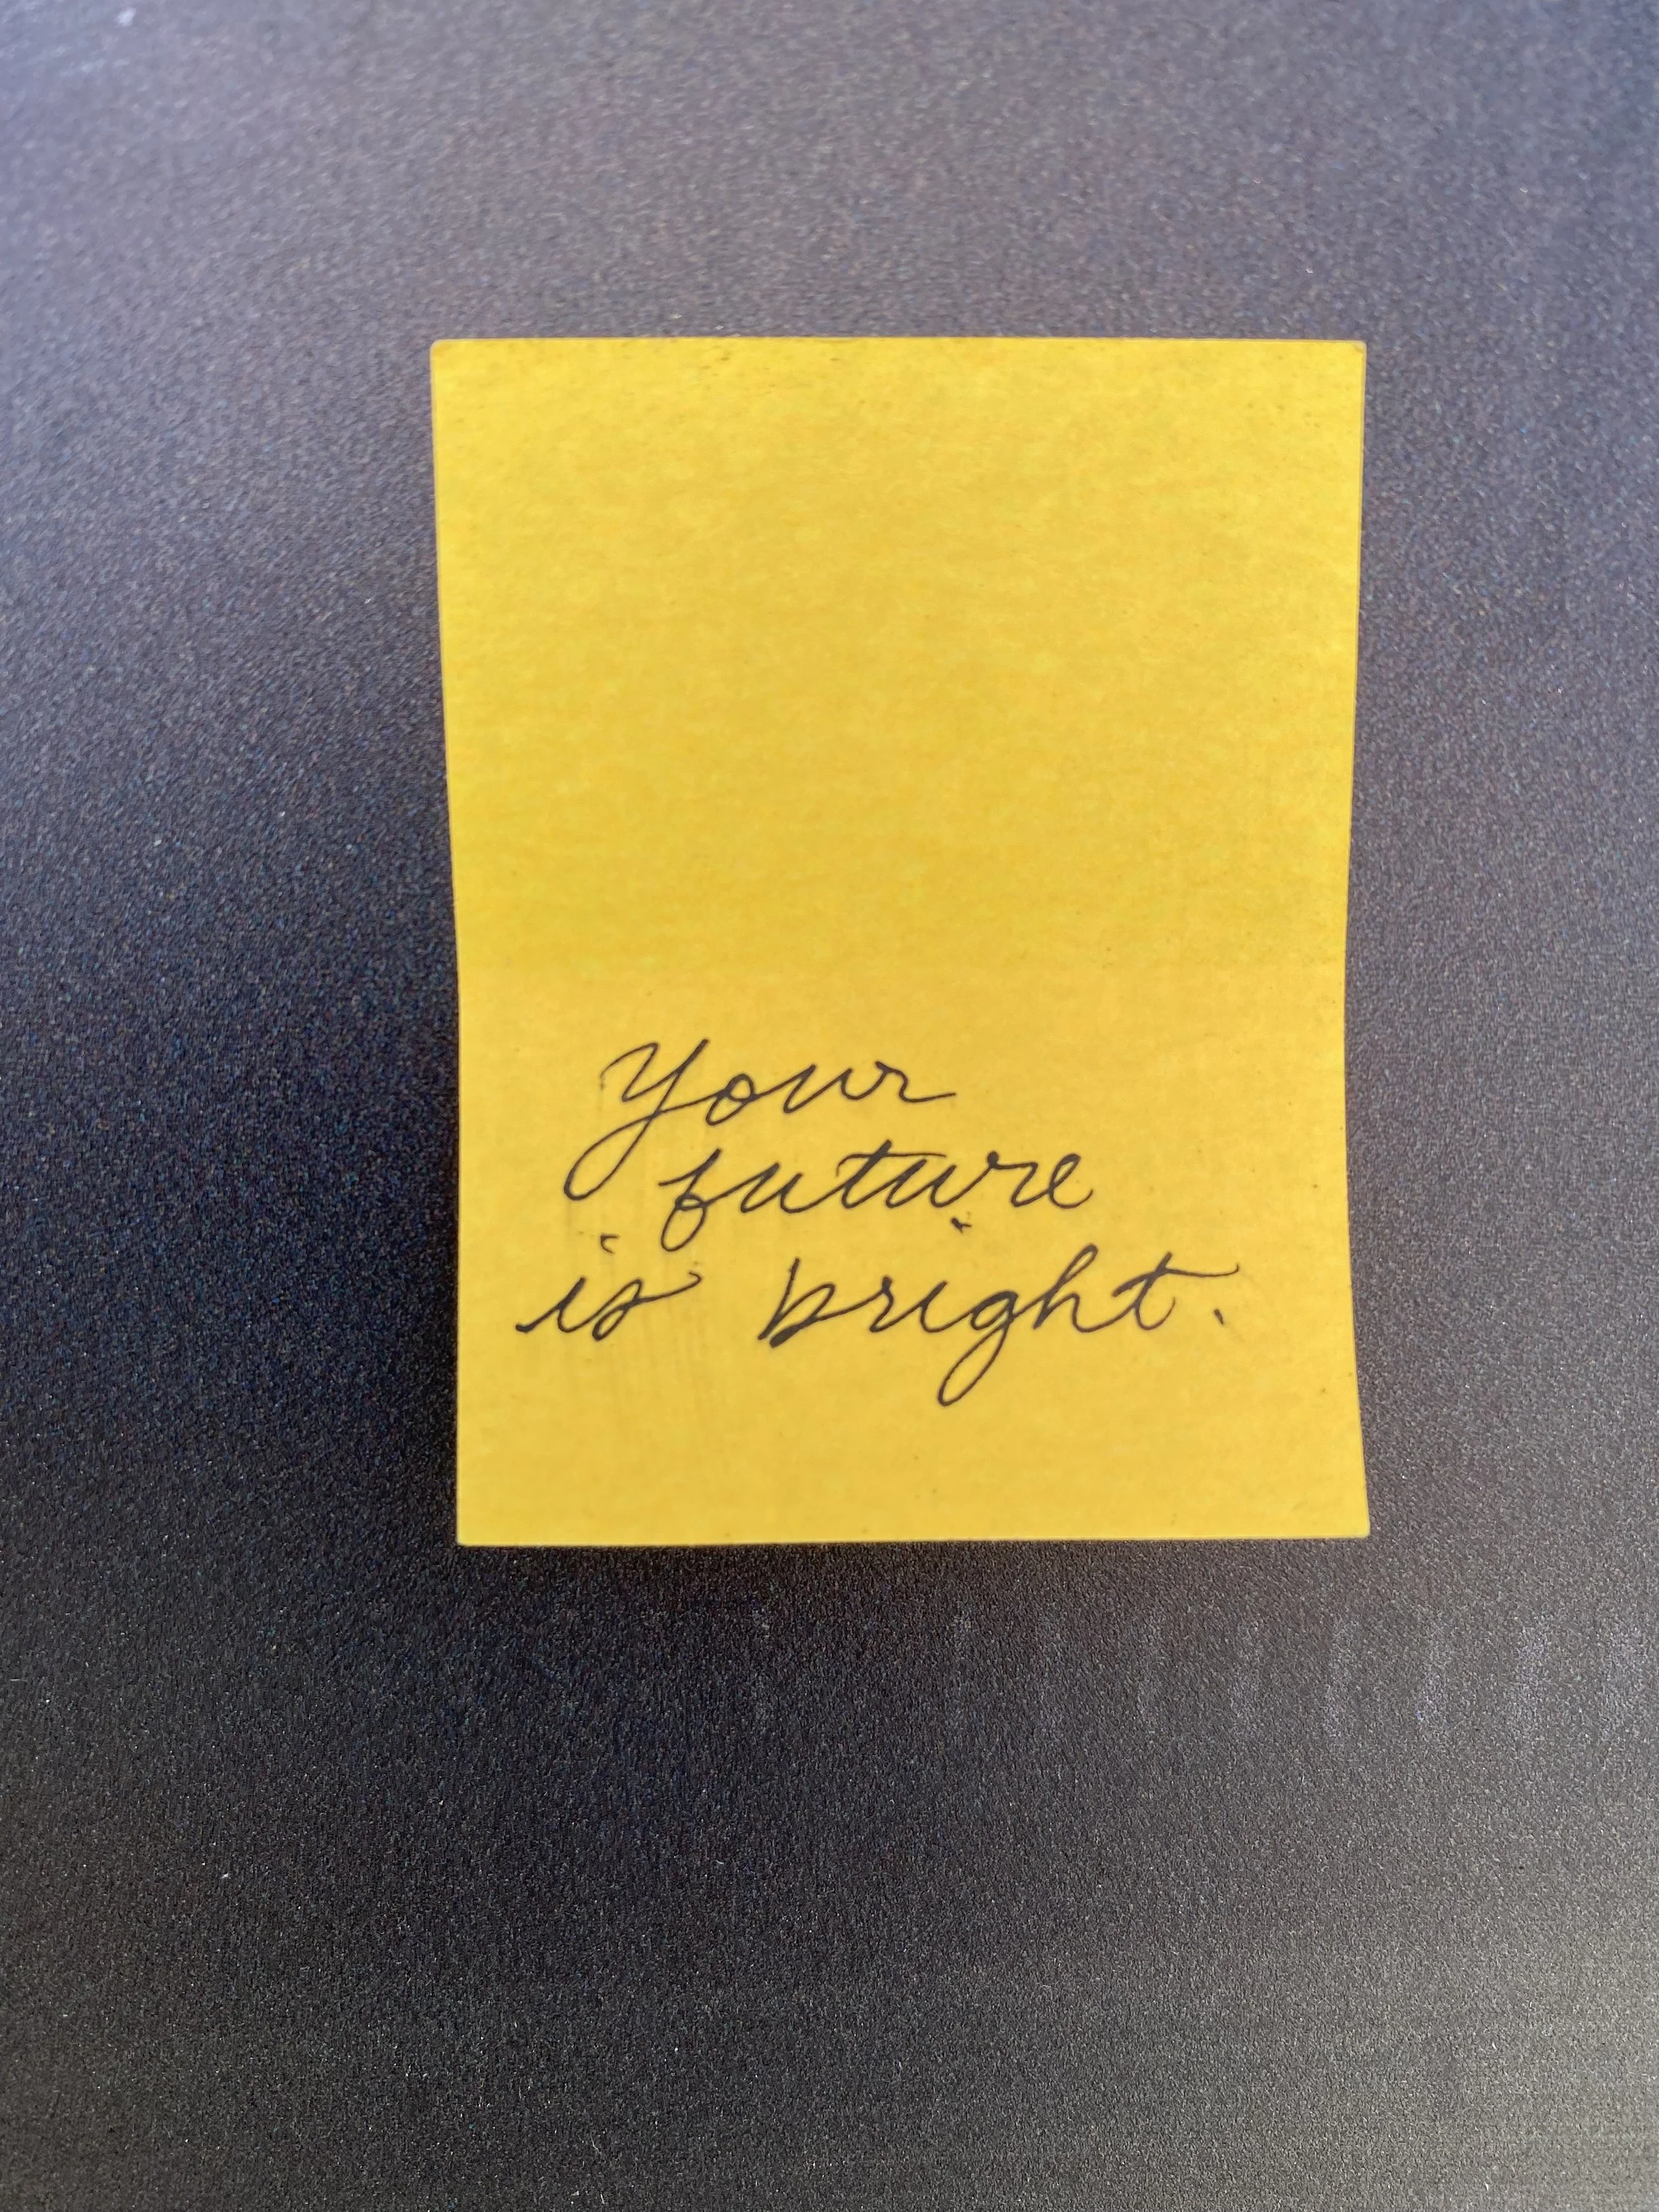 Your
future
is bright.